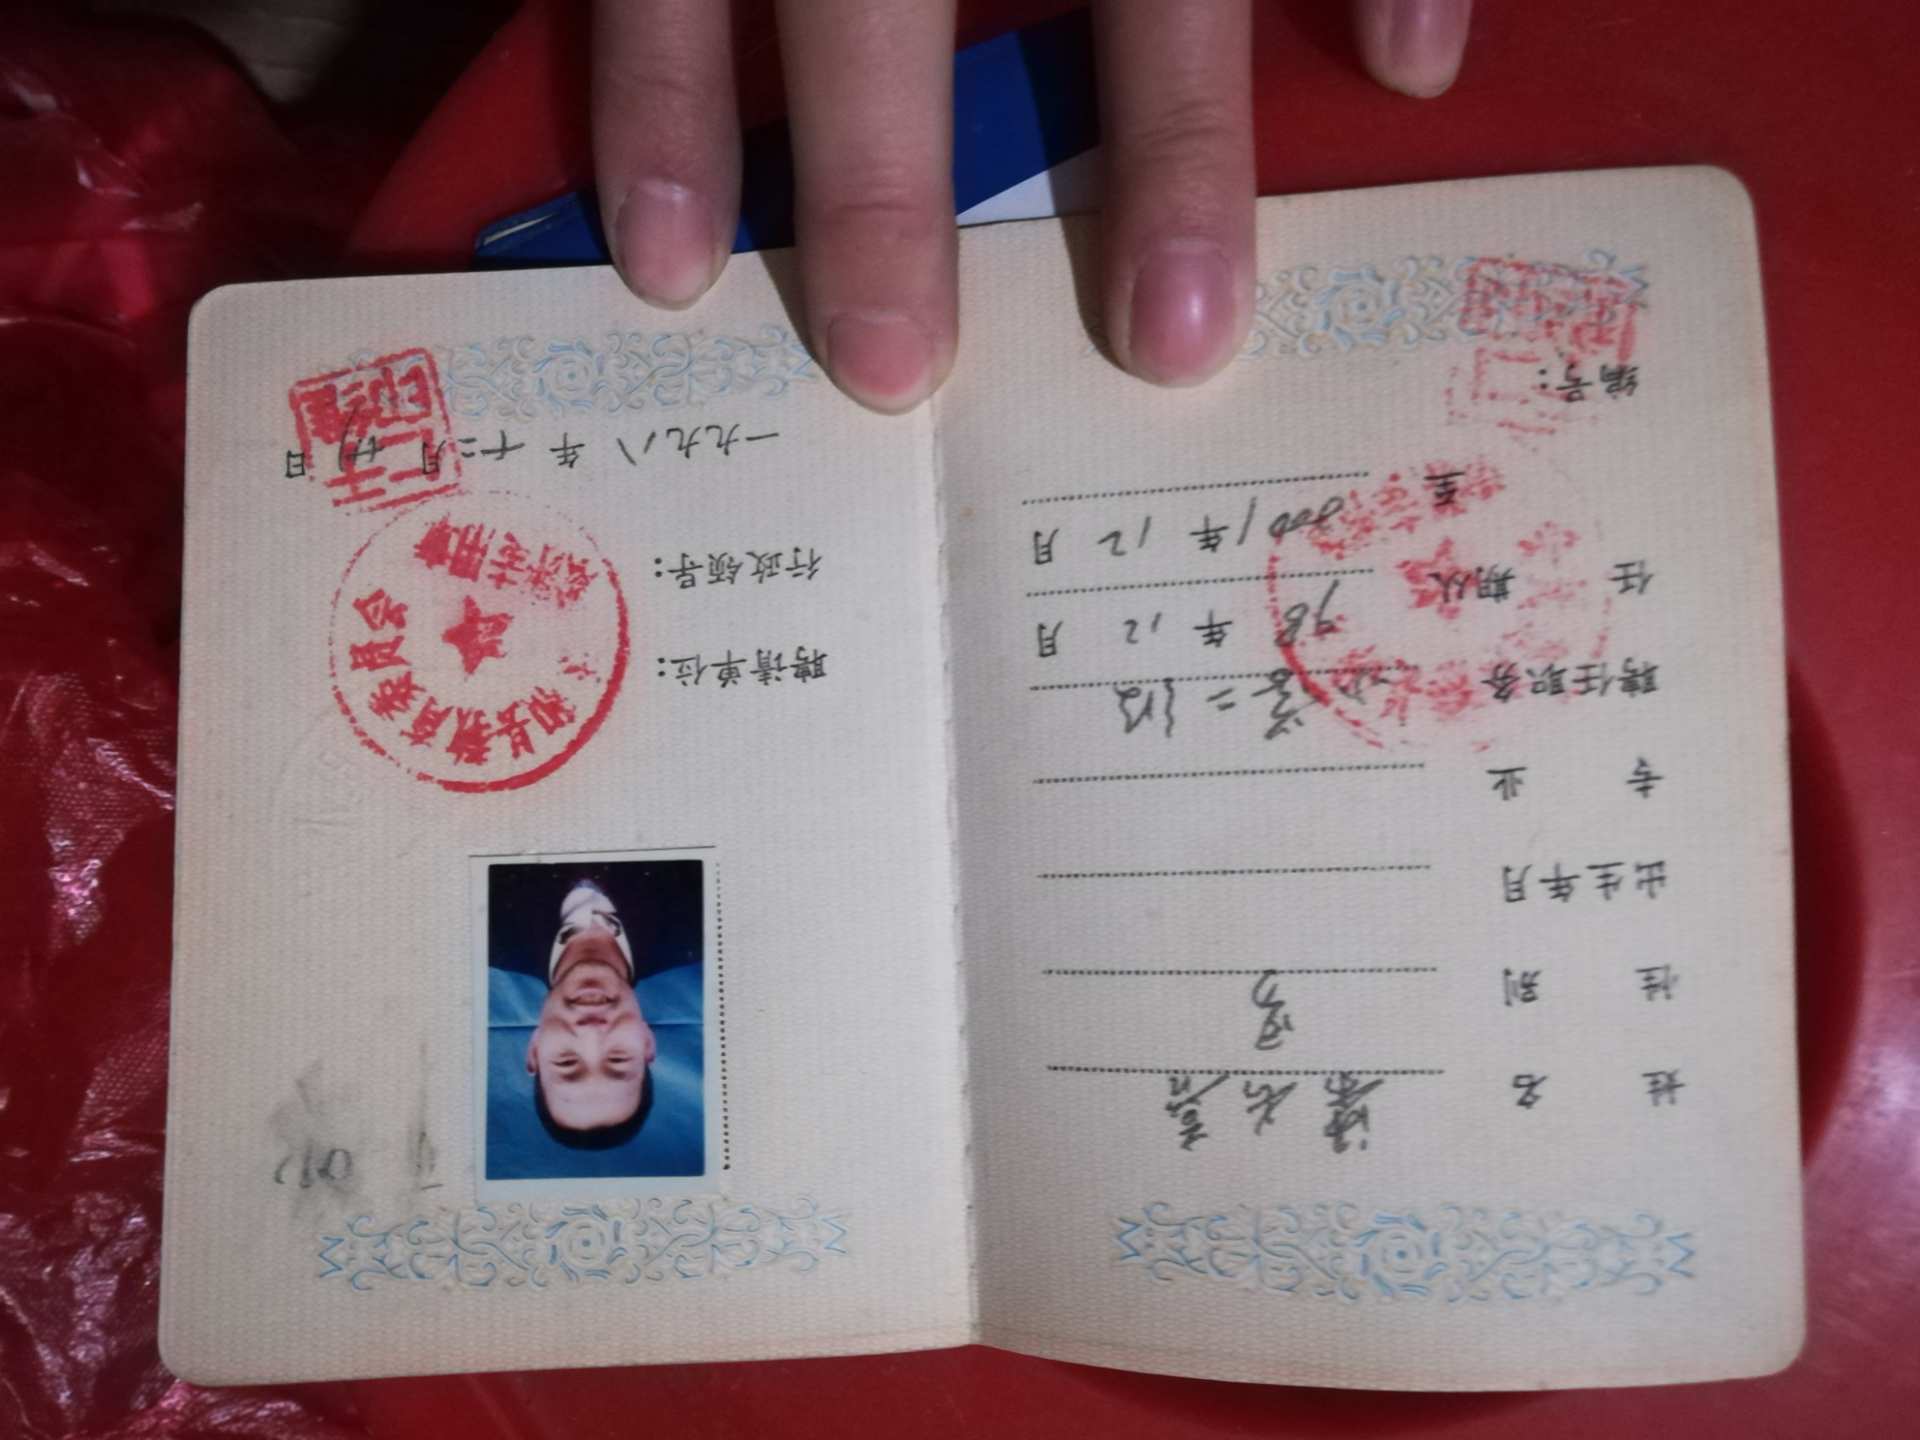 姓 名
性 别 男
出生年月
专 业
聘任职务 小学二级
任 期从 98年12月
至 2001年12月
编号:
聘请单位:
县教育委员会
行政领导:
一九九八年十二月 日